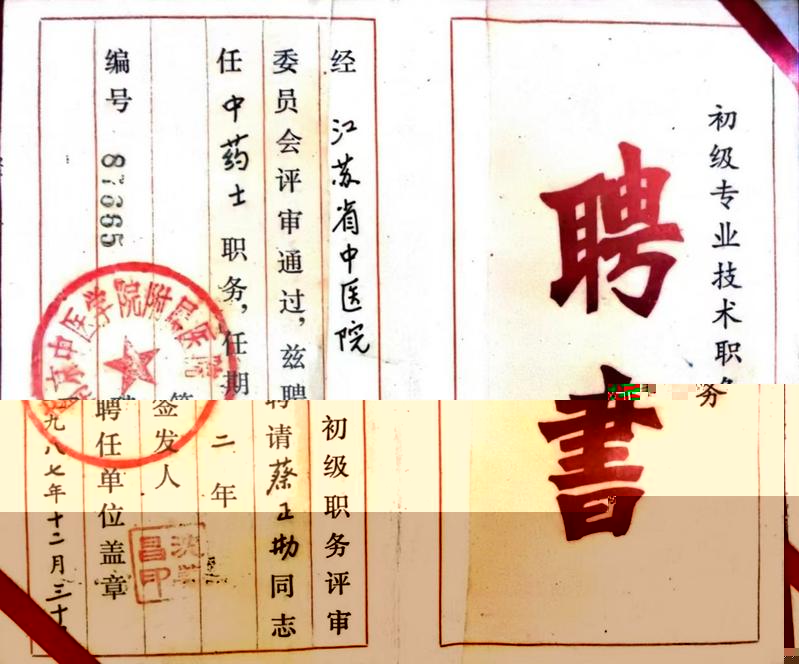 初级专业技术职务
聘书
经 江苏省中医院 初级职务评审
委员会评审通过，兹聘请蔡正同志
任中药士职务，任期二年
签发人
昌印
编号 87365
聘任单位盖章
南京中医学院附属医院
一九八七年十二月三十